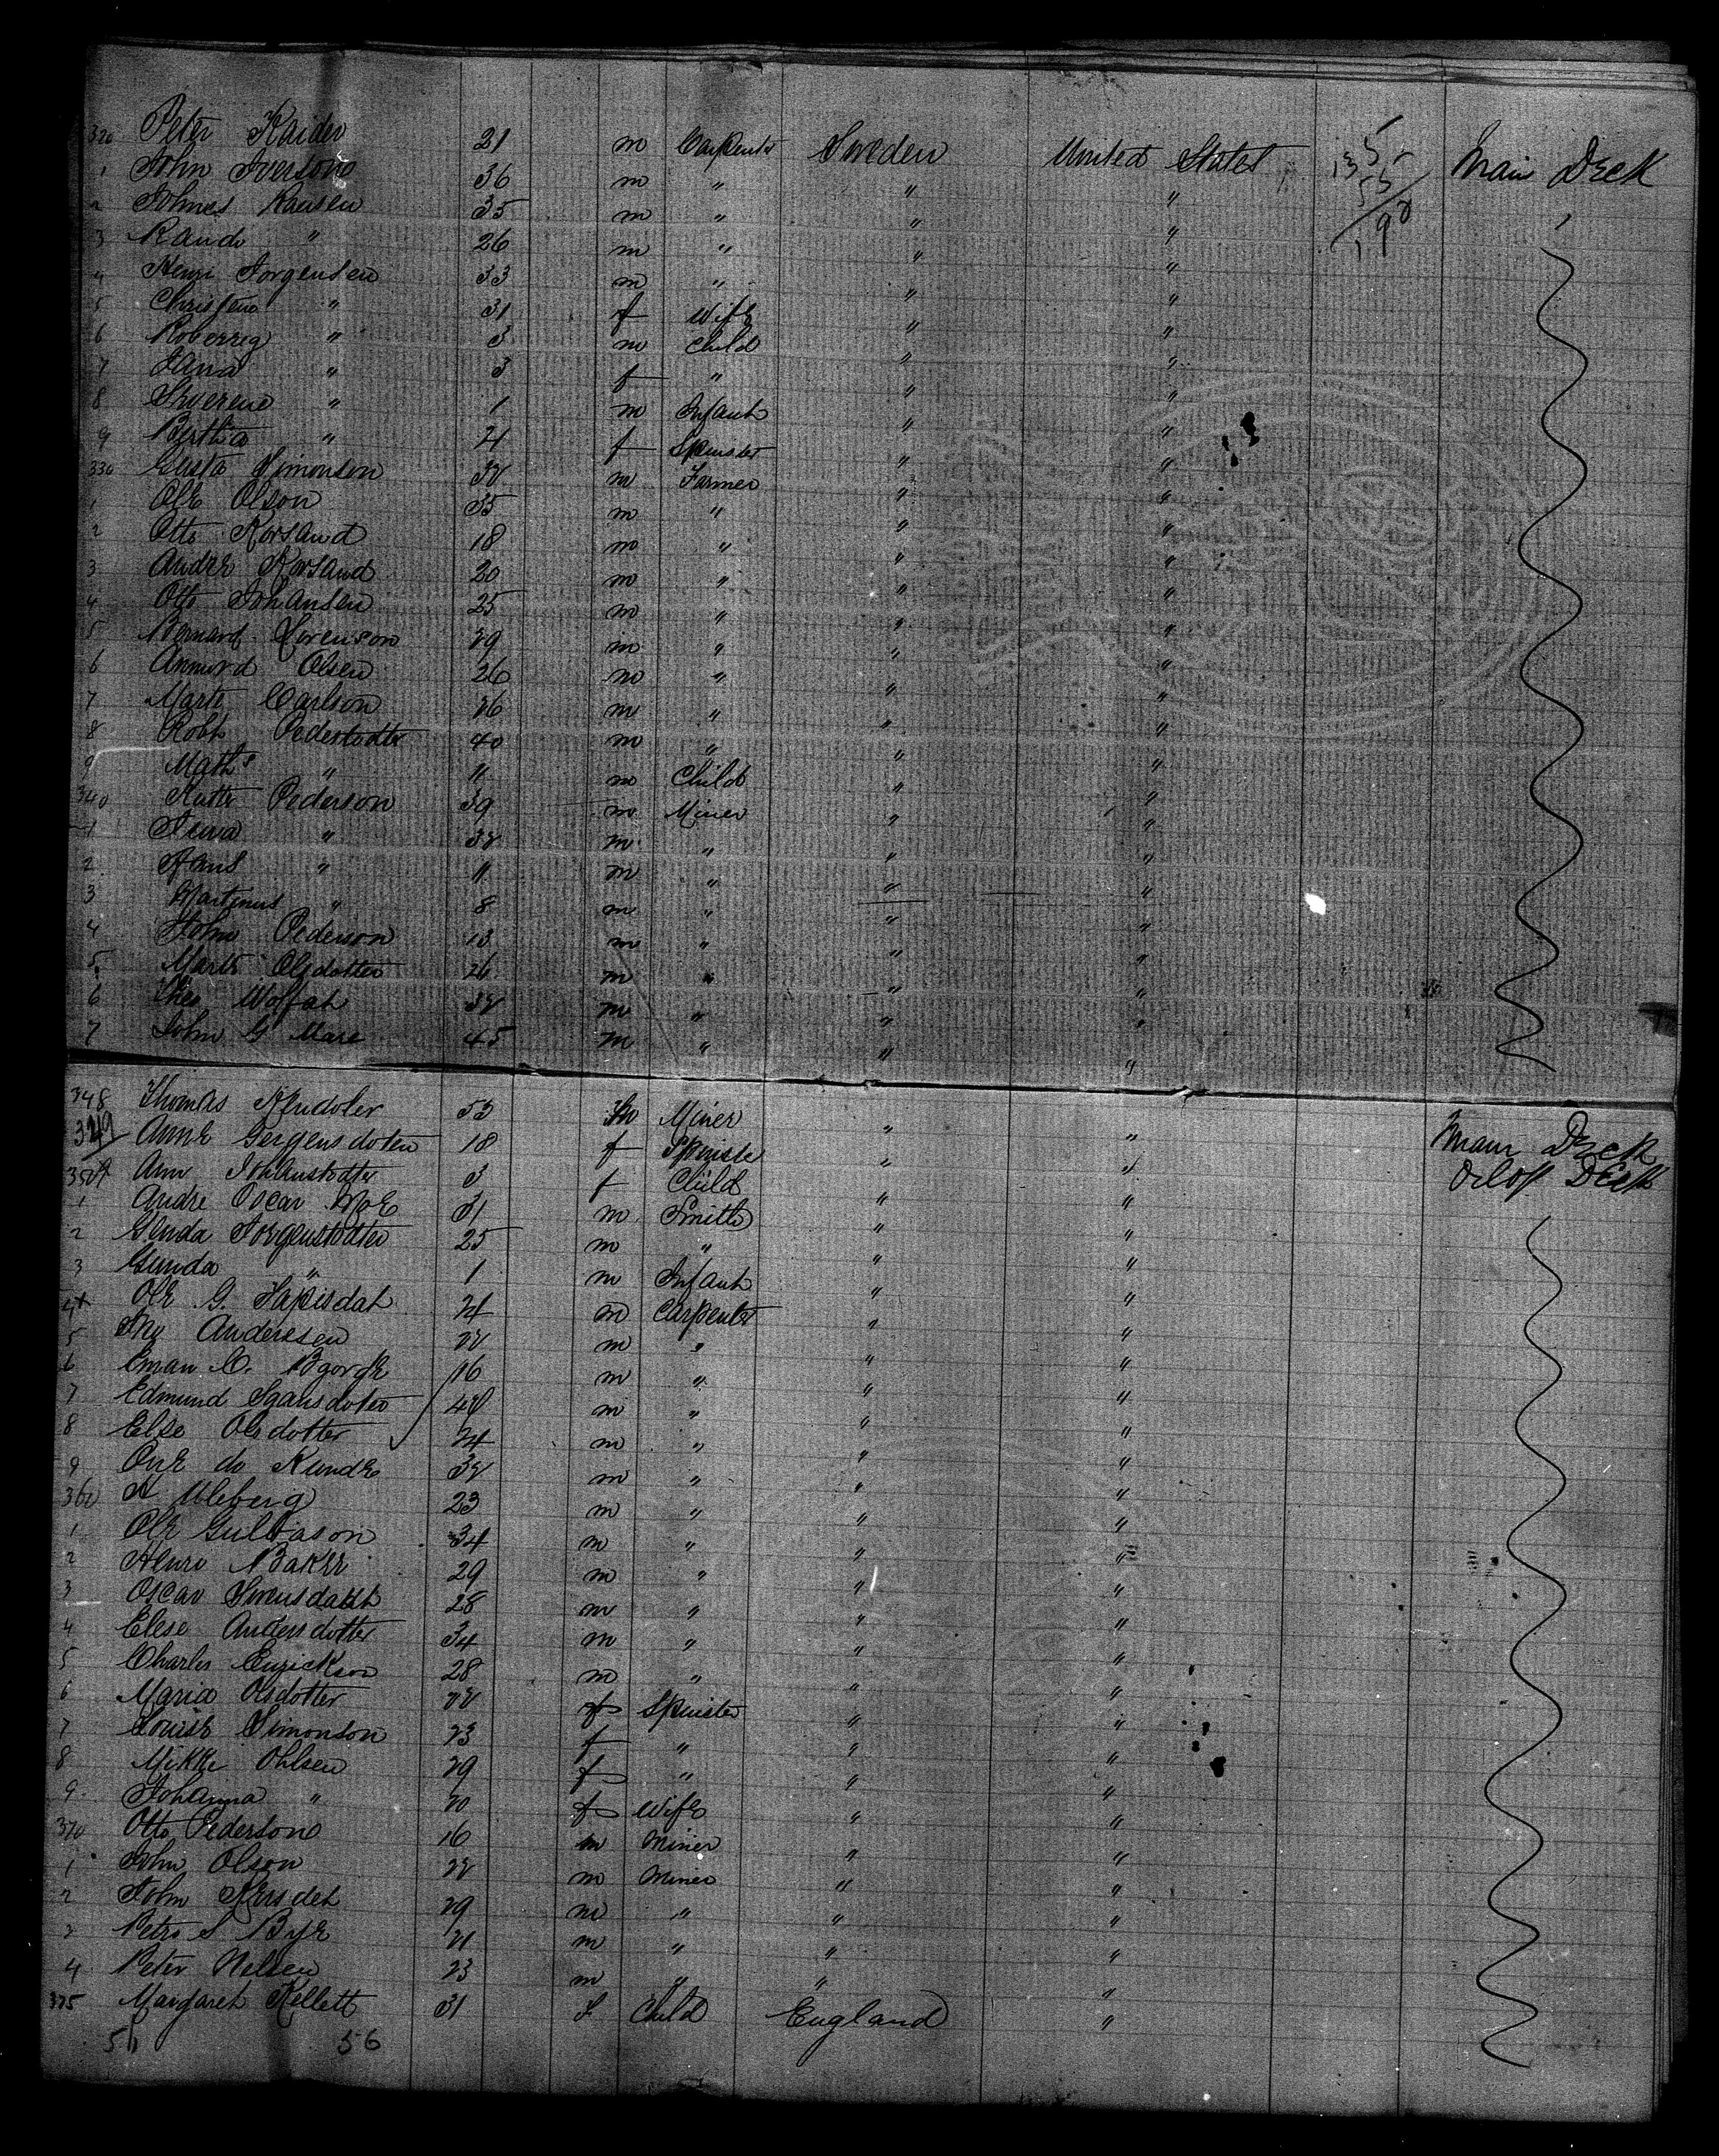 320 Peter Kaider 21 m Carpenter Sweden United States Main Deck
1 John Iverson 36 m " " "
2 Johnes Hansen 35 m " " "
3 Rand " 26 m " " "
4 Henri Jorgensen 33 m " " "
5 Christene " 31 f Wife " "
6 Roberreg " 3 m Child " "
7 Jana " 3 f " " "
8 " 1 m Infant " "
9 Bertha " 21 f Spinster " "
330 Gusta Simonson 32 m Farmer " "
1 Ole Olson 35 m " " "
2 Otto Korsand 18 m " " "
3 Andre Korsand 20 m " " "
4 Otto Johansen 25 m " " "
5 Bernard Sorenson 29 m " " "
6 Olsen 26 m " " "
7 Marte Carlson 26 m " " "
8 Robt Pederstodter 40 m " " "
9 Maths " 11 m Child " "
340 Pederson 39 m Miner " "
1 " 32 m " " "
2 " 11 m " " "
3 Martinus " 8 m " " "
4 John Pederson 13 m " " "
5 Marte Olsdotter 26 m " " "
6 Theo Moffat 32 m " " "
7 John G Mare 45 m " " "
348 Thomas 53 m Miner " " Main Deck
349 Anne Gergensdoten 18 f Spinster " " Orlop Deck
350 Ann Johanstodter 3 f Child " "
1 Andre Oscar Moe 31 m Smith " "
2 Genda Jorgenstodter 25 m " " "
3 Gunda " 1 m Infant " "
4 Ole G. 24 m Carpenter " "
5 Andersen 22 m " " "
6 Eman C. Bgorge 16 m " " "
7 Edmund 42 m " " "
8 Else Olsdotter 24 m " " "
9 do Kunde 32 m " " "
360 A Uleberg 23 m " " "
1 Ole Gulbiason 34 m " " "
2 Henro Baker 29 m " " "
3 Oscar 28 m " " "
4 Elese Andersdotter 34 m " " "
5 Charles Enrickson 28 m " " "
6 Maria Olsdotter 22 f Spinster " "
7 Louise Simonson 23 f " " "
8 Mikke Ohlsen 29 f " " "
9 Johanna " 20 f Wife " "
370 Otto Pederson 16 m Miner " "
1 John Olson 22 m Miner " "
2 John 29 m " " "
3 Petro S Bye 21 m " " "
4 Peter Nelsen 23 m " " "
375 Margaret Kellett 31 f Child England "
56